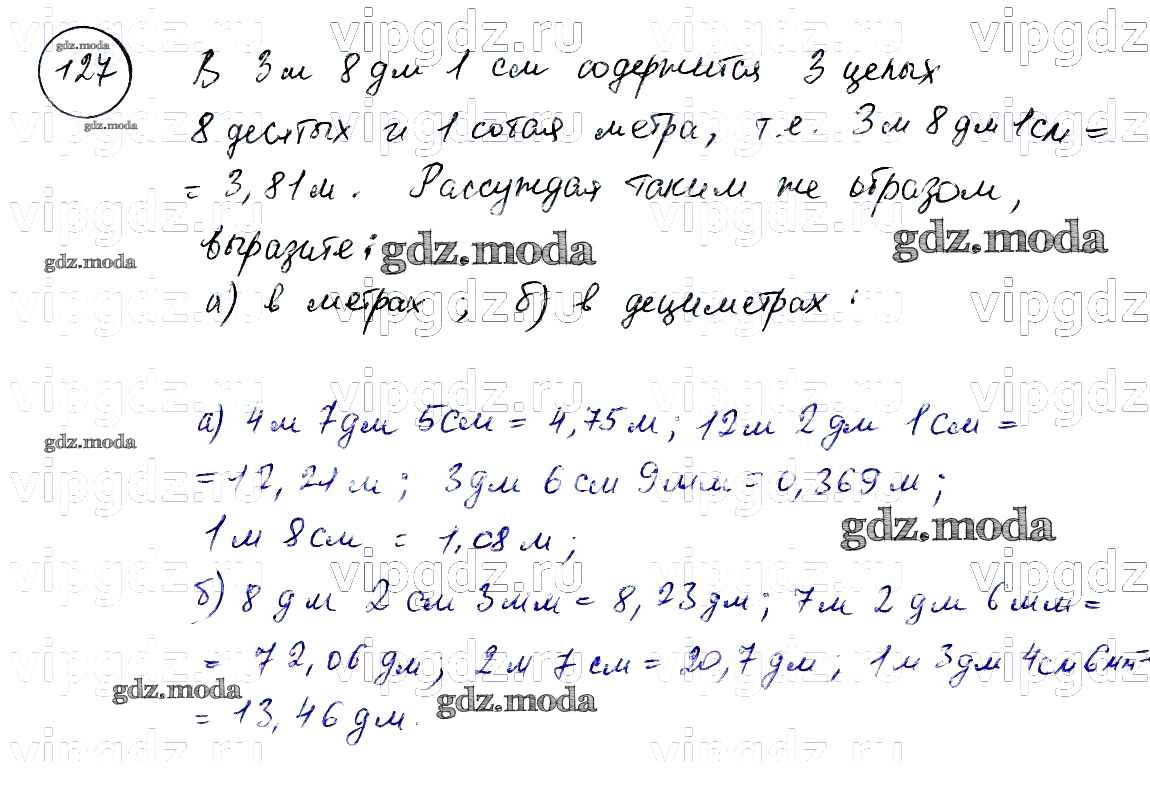 127
В 3м 8дм 1 см содержится 3 целых
8 десятых и 1 сотая метра, т.е. 3м 8дм 1см =
= 3,81м. Рассуждая таким же образом,
выразите:
а) в метрах; б) в дециметрах:
а) 4м 7дм 5см = 4,75м; 12м 2дм 1см =
= 12,21м; 3дм 6см 9мм = 0,369м;
1м 8см = 1,08м;
б) 8дм 2см 3мм = 8,23дм; 7м 2дм 6мм =
= 72,06дм; 2м 7см = 20,7дм; 1м 3дм 4см 6мм
= 13,46дм.
gdz.moda
gdz.moda
gdz.moda
gdz.moda
gdz.moda
gdz.moda
gdz.moda
gdz.moda
gdz.moda
vipgdz.ru